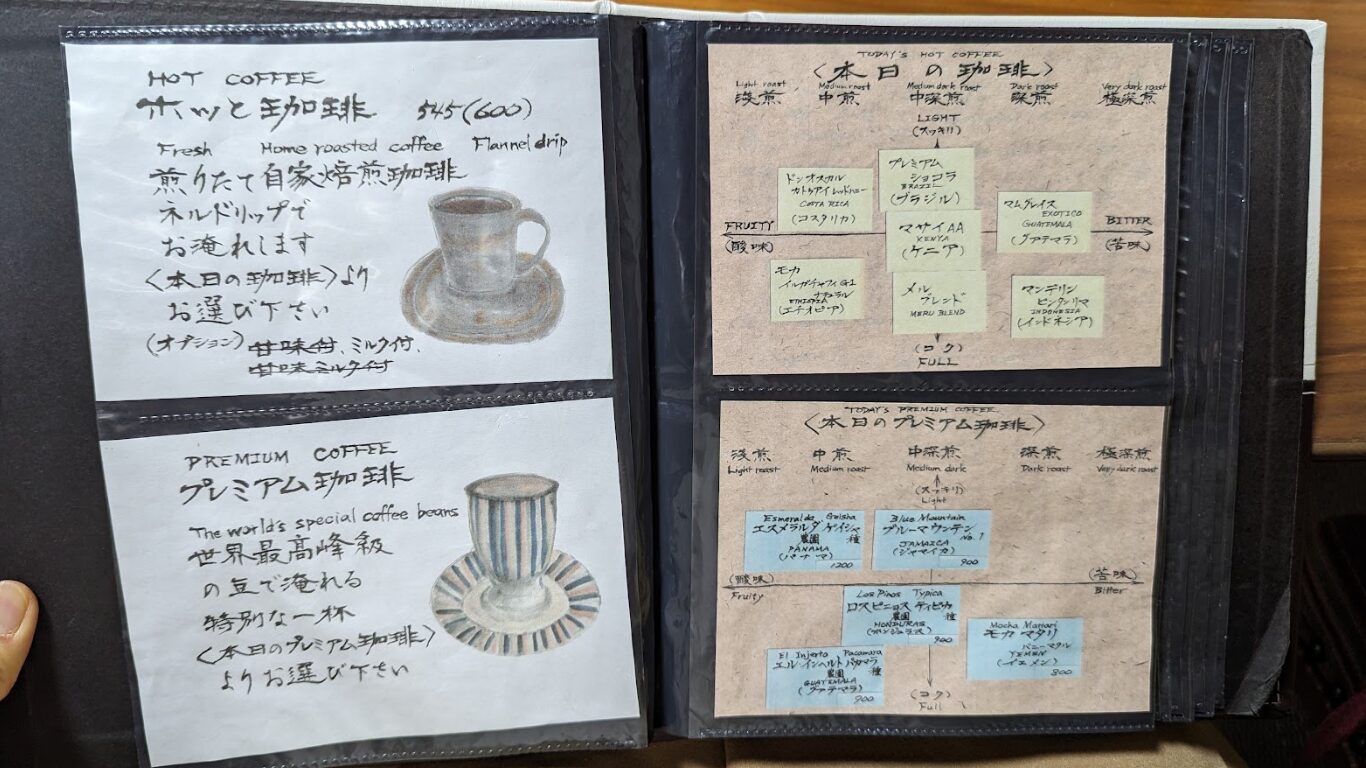 HOT COFFEE
ホッと珈琲 545(600)
Fresh Home roasted coffee Flannel drip
煎りたて自家焙煎珈琲
ネルドリップで
お淹れします
〈本日の珈琲〉より
お選び下さい
(オプション) 甘味付、ミルク付、
甘味ミルク付
PREMIUM COFFEE
プレミアム珈琲
The world's special coffee beans
世界最高峰級
の豆で淹れる
特別な一杯
〈本日のプレミアム珈琲〉
よりお選び下さい
TODAY'S HOT COFFEE
〈本日の珈琲〉
Light roast Medium roast Medium dark roast Dark roast Very dark roast
浅煎 中煎 中深煎 深煎 極深煎
LIGHT
(スッキリ)
プレミアム
ショコラ
BRAZIL
(ブラジル)
ドンオスカル
カトゥアイ レッドハニー
COSTA RICA
(コスタリカ)
マムグレイス
EXOTICO
GUATEMALA
(グアテマラ)
マサイAA
KENYA
(ケニア)
FRUITY
(酸味)
BITTER
(苦味)
モカ
イルガチャフィG1
ナチュラル
ETHIOPIA
(エチオピア)
メル
ブレンド
MERU BLEND
マンデリン
ビンタンリマ
INDONESIA
(インドネシア)
(コク)
FULL
TODAY'S PREMIUM COFFEE
〈本日のプレミアム珈琲〉
浅煎 中煎 中深煎 深煎 極深煎
Light roast Medium roast Medium dark Dark roast Very dark roast
(スッキリ)
Light
Esmeralda Geisha
エスメラルダ ゲイシャ
農園 種
PANAMA
(パナマ)
1200
Blue Mountain
ブルーマウンテン
No.1
JAMAICA
(ジャマイカ)
900
(酸味)
Fruity
(苦味)
Bitter
Los Pinos Typica
ロスピニョス ティピカ
農園 種
HONDURAS
(ホンジュラス)
900
Mocha Mattari
モカ マタリ
バニーマタル
YEMEN
(イエメン)
800
El Injerto Pacamara
エル・インヘルト パカマラ
農園 種
GUATEMALA
(グァテマラ)
900
(コク)
Full